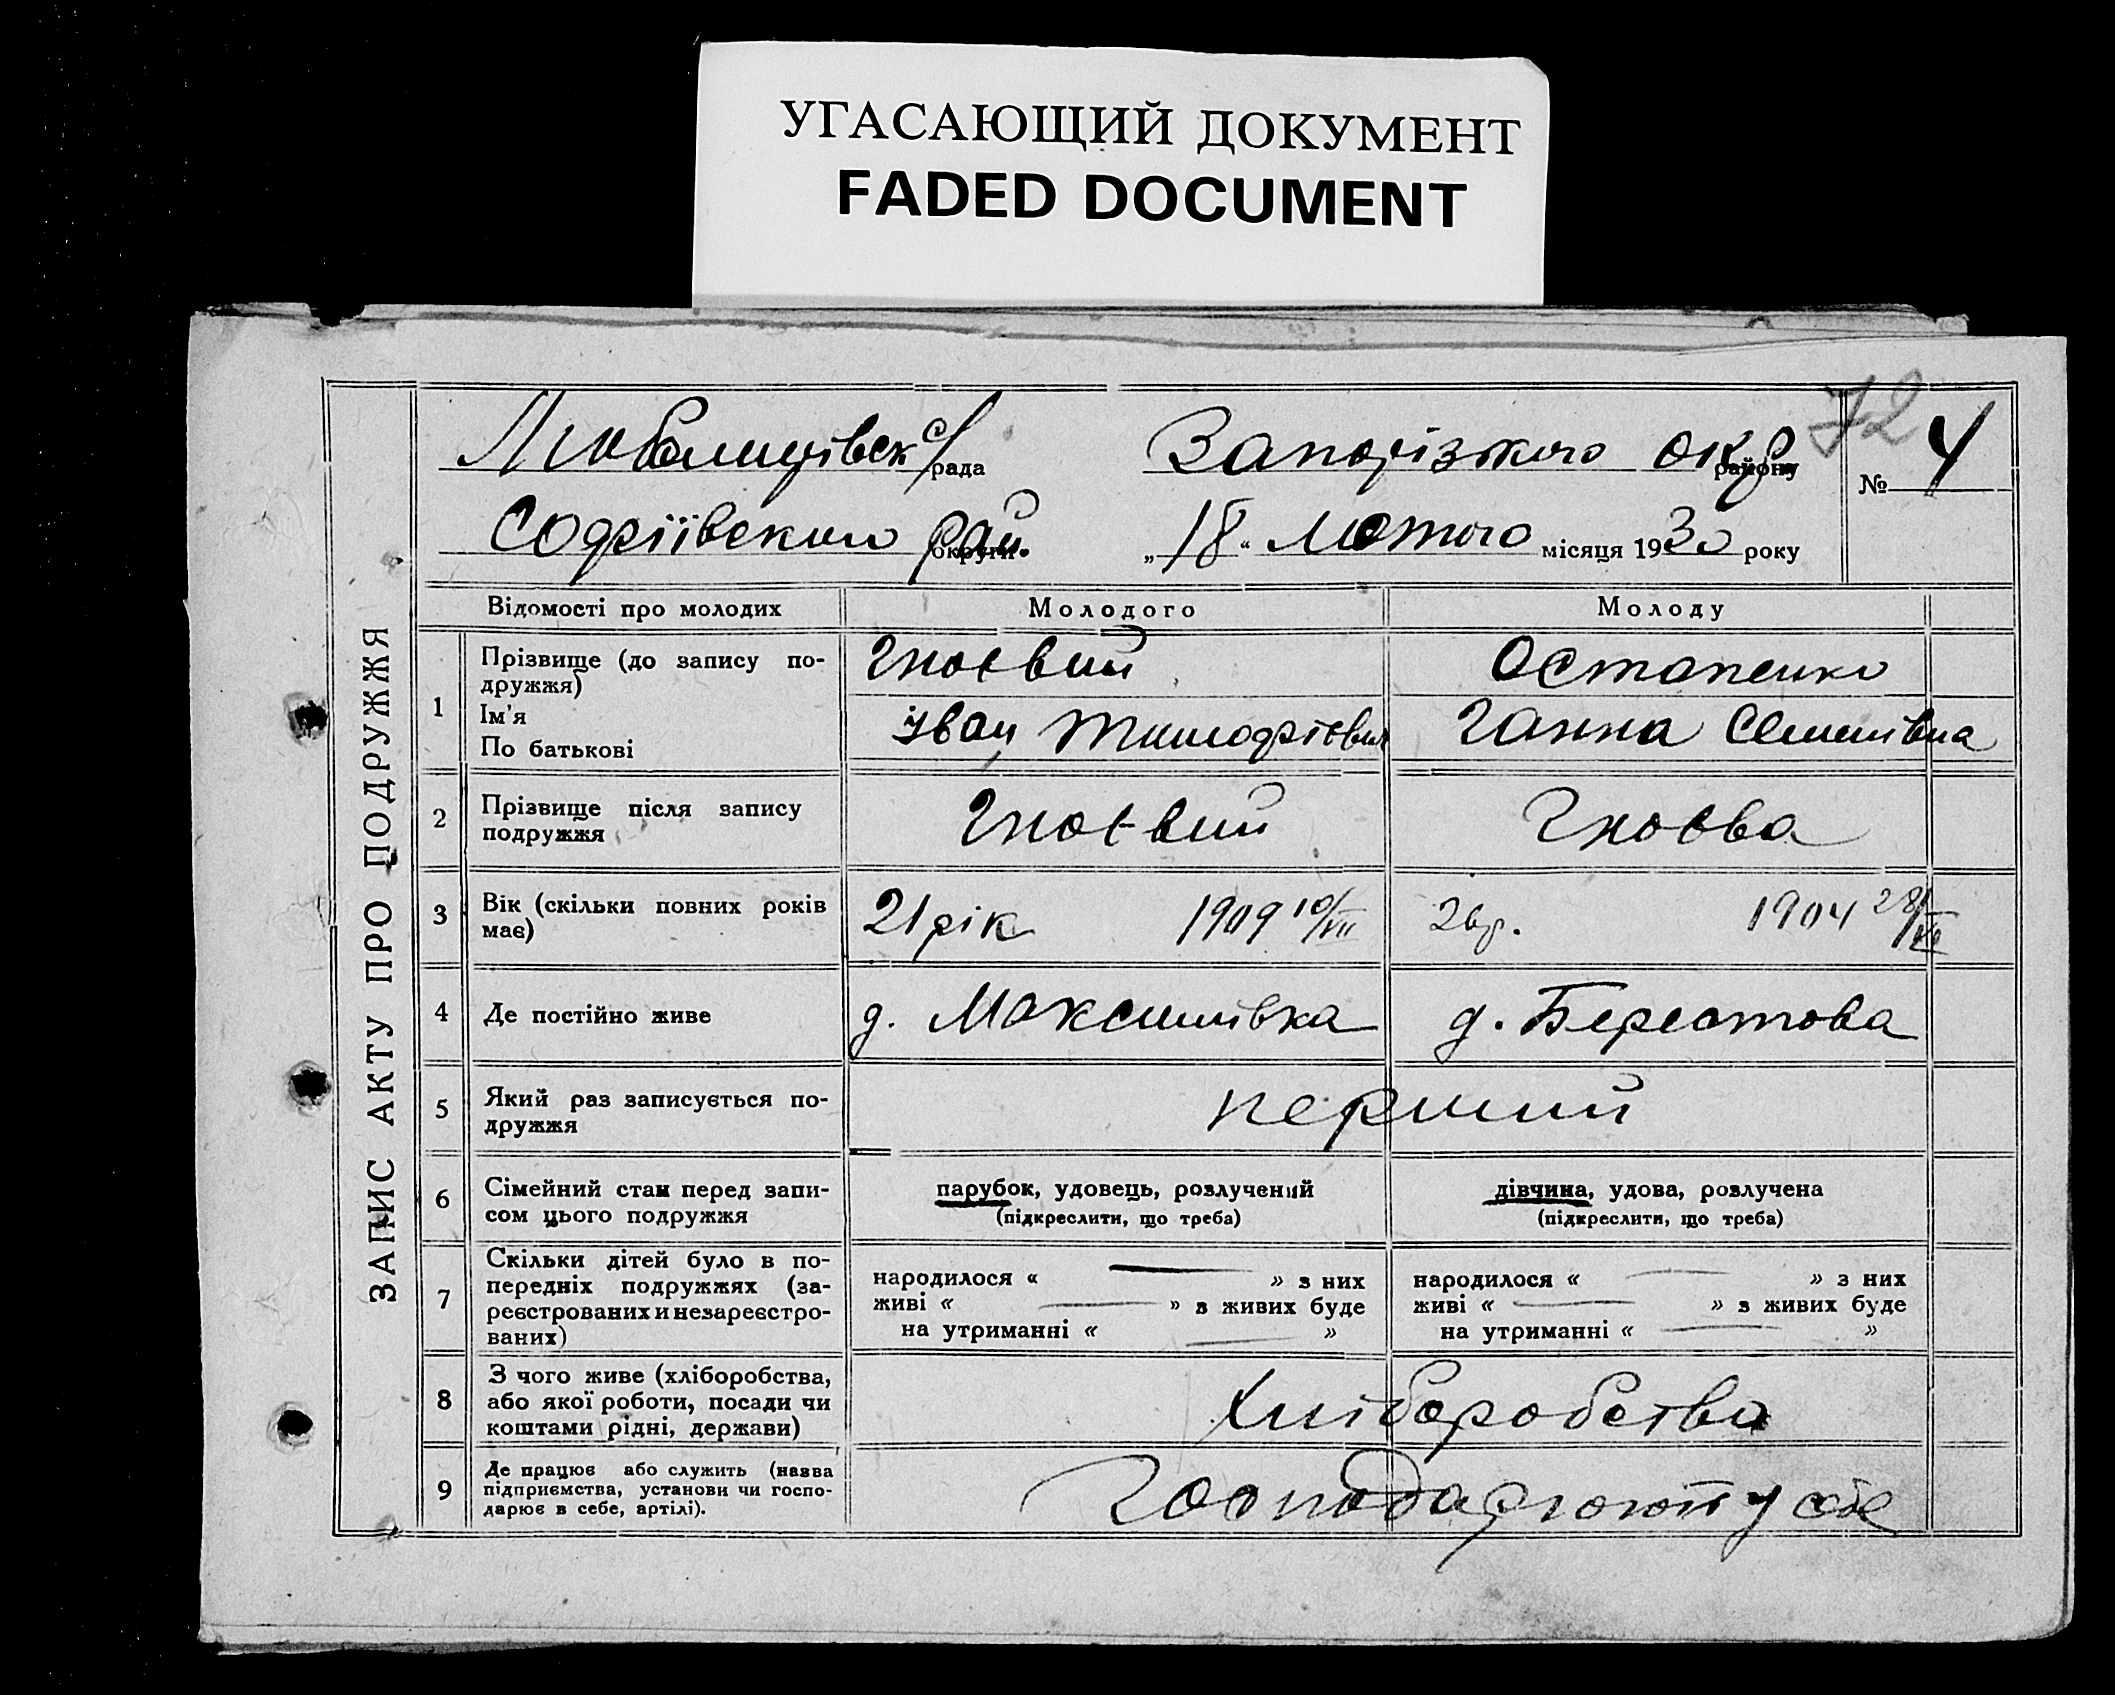 УГАСАЮЩИЙ ДОКУМЕНТ
FADED DOCUMENT
72
ЗАПИС АКТУ ПРО ПОДРУЖЖЯ
Любомирівск с/рада Запорізького окр. району № 4
Софіївського рай. округи „18“ Лютого місяця 1930 року
Відомості про молодих Молодого Молоду
1 Прізвище (до запису по-
дружжя) Гноєвий Остапенко
Ім'я
По батькові Іван Тимофієвич Ганна Семенівна
2 Прізвище після запису
подружжя Гноєвий Гноєва
3 Вік (скільки повних років
має) 21 рік 1909 10/VII 26 р. 1904
4 Де постійно живе д. Максимівка д. Берестова
5 Який раз записується по-
дружжя перший
6 Сімейний стан перед запи-
сом цього подружжя
парубок, удовець, розлучений
(підкреслити, що треба)
дівчина, удова, розлучена
(підкреслити, що треба)
7 Скільки дітей було в по-
передніх подружжях (за-
реєстрованих и незареєстро-
ваних)
народилося « — » з них
живі « — » з живих буде
на утриманні « — »
народилося « — » з них
живі « — » з живих буде
на утриманні « — »
8 З чого живе (хліборобства,
або якої роботи, посади чи
коштами рідні, держави) Хліборобства
9 Де працює або служить (назва
підприємства, установи чи госпо-
дарює в себе, артілі). Господарюють у себе